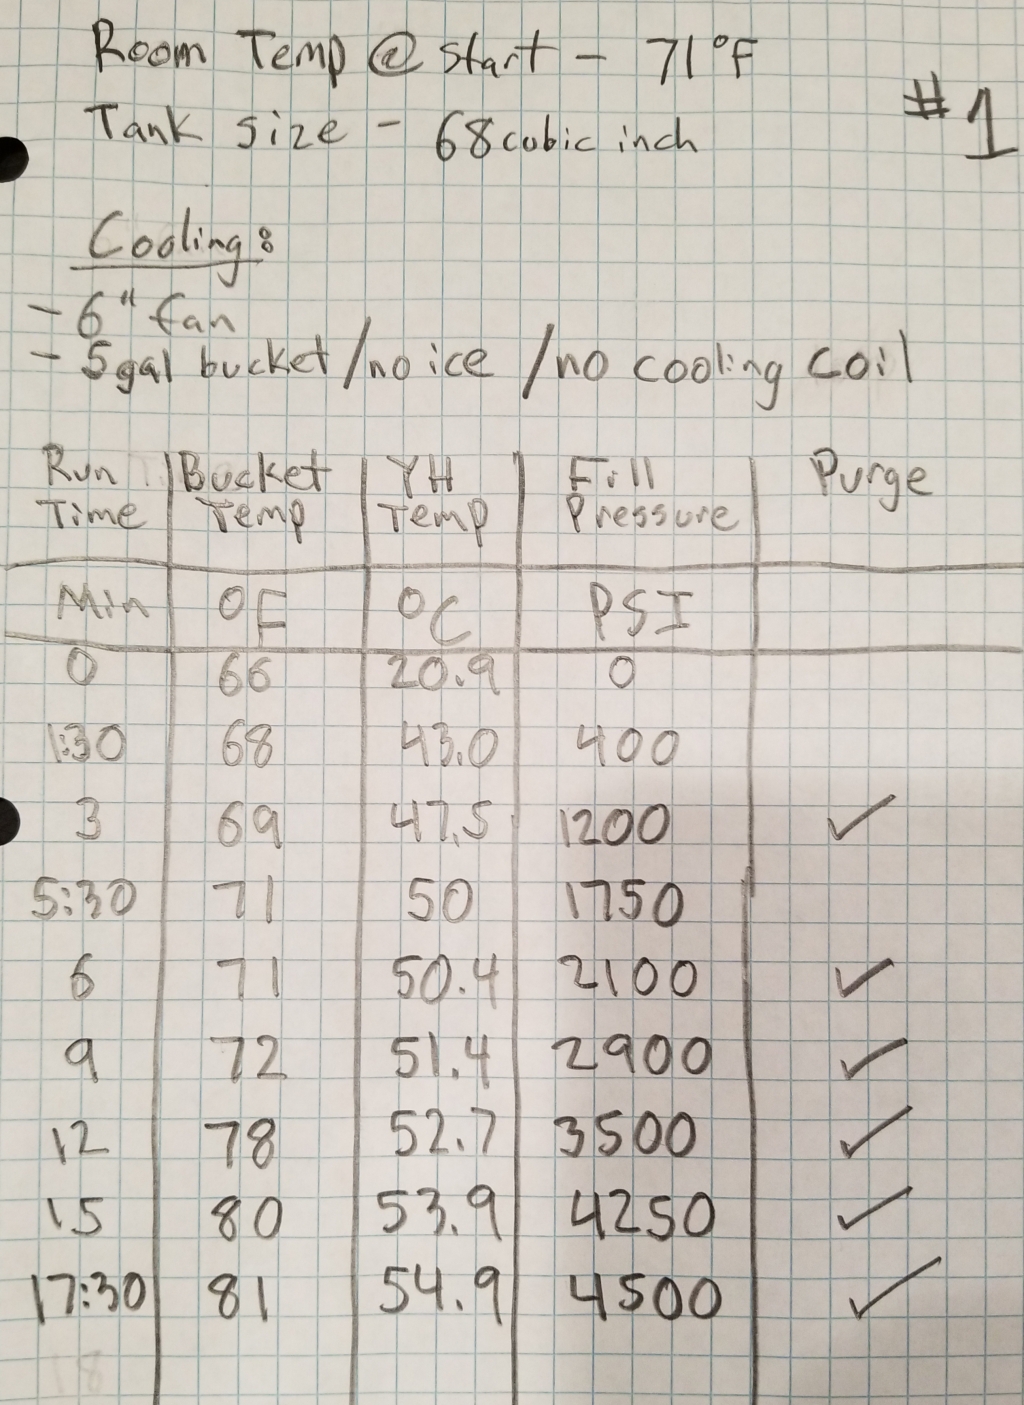 Room Temp @ start - 71°F
Tank size - 68 cubic inch
#1
Cooling:
- 6" fan
- 5gal bucket/no ice /no cooling coil
Run Time | Bucket Temp | YH Temp | Fill Pressure | Purge
Min | °F | °C | PSI
0 | 66 | 20.9 | 0
1:30 | 68 | 43.0 | 400
3 | 69 | 47.5 | 1200 | ✓
5:30 | 71 | 50 | 1750
6 | 71 | 50.4 | 2100 | ✓
9 | 72 | 51.4 | 2900 | ✓
12 | 78 | 52.7 | 3500 | ✓
15 | 80 | 53.9 | 4250 | ✓
17:30 | 81 | 54.9 | 4500 | ✓